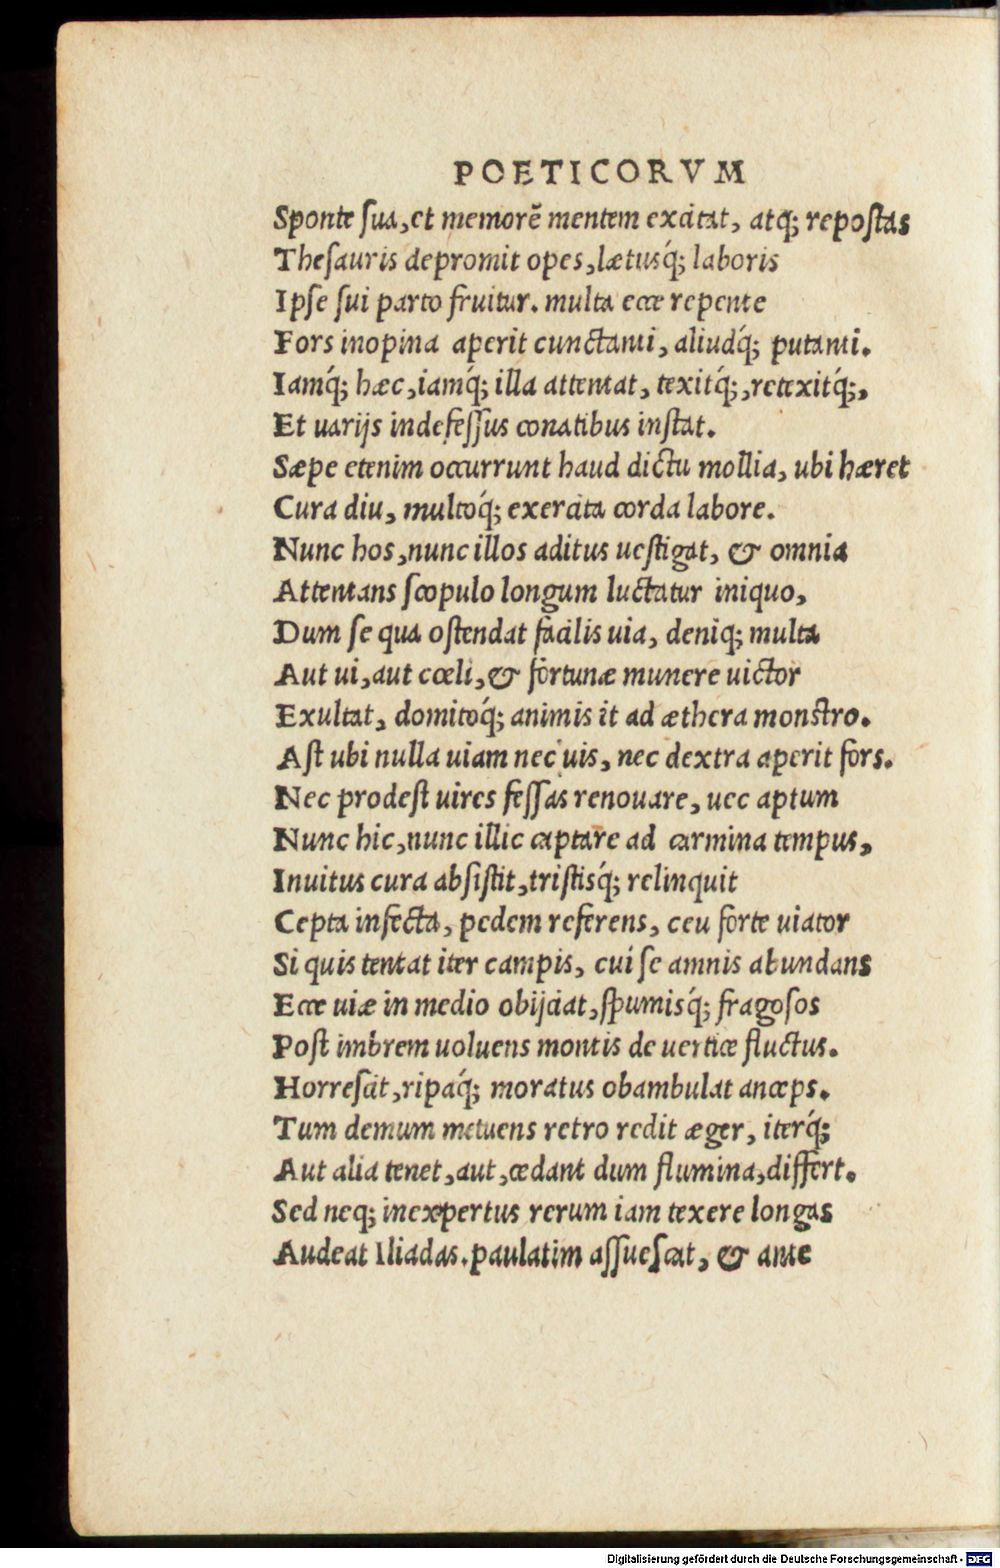 POETICORVM
Sponte ſua, et memorē mentem excitat, atq; repoſtas
Theſauris depromit opes, lætusq́; laboris
Ipſe ſui parto fruitur. multa ecce repente
Fors inopina aperit cunctanti, aliudq́; putanti.
Iamq́; hæc, iamq́; illa attentat, texitq́;, retexitq́;,
Et uarijs indefeſſus conatibus inſtat.
Sæpe etenim occurrunt haud dictu mollia, ubi hæret
Cura diu, multoq́; exercita corda labore.
Nunc hos, nunc illos aditus ueſtigat, & omnia
Attentans ſcopulo longum luctatur iniquo,
Dum ſe qua oſtendat facilis uia, deniq; multa
Aut ui, aut cœli, & fortunæ munere uictor
Exultat, domitoq́; animis it ad æthera monſtro.
Aſt ubi nulla uiam nec uis, nec dextra aperit fors.
Nec prodeſt uires feſſas renouare, uec aptum
Nunc hic, nunc illic captare ad carmina tempus,
Inuitus cura abſiſtit, triſtisq́; relinquit
Cepta infecta, pedem referens, ceu forte uiator
Si quis tentat iter campis, cui ſe amnis abundans
Ecce uiæ in medio obijciat, ſpumisq́; fragoſos
Poſt imbrem uoluens montis de uertice fluctus.
Horreſcit, ripaq́; moratus obambulat anceps.
Tum demum metuens retro redit æger, iterq́;
Aut alia tenet, aut, cedant dum flumina, differt.
Sed neq; inexpertus rerum iam texere longas
Audeat Iliadas. paulatim aſſueſcat, & ante
Digitalisierung gefördert durch die Deutsche Forschungsgemeinschaft - DFG